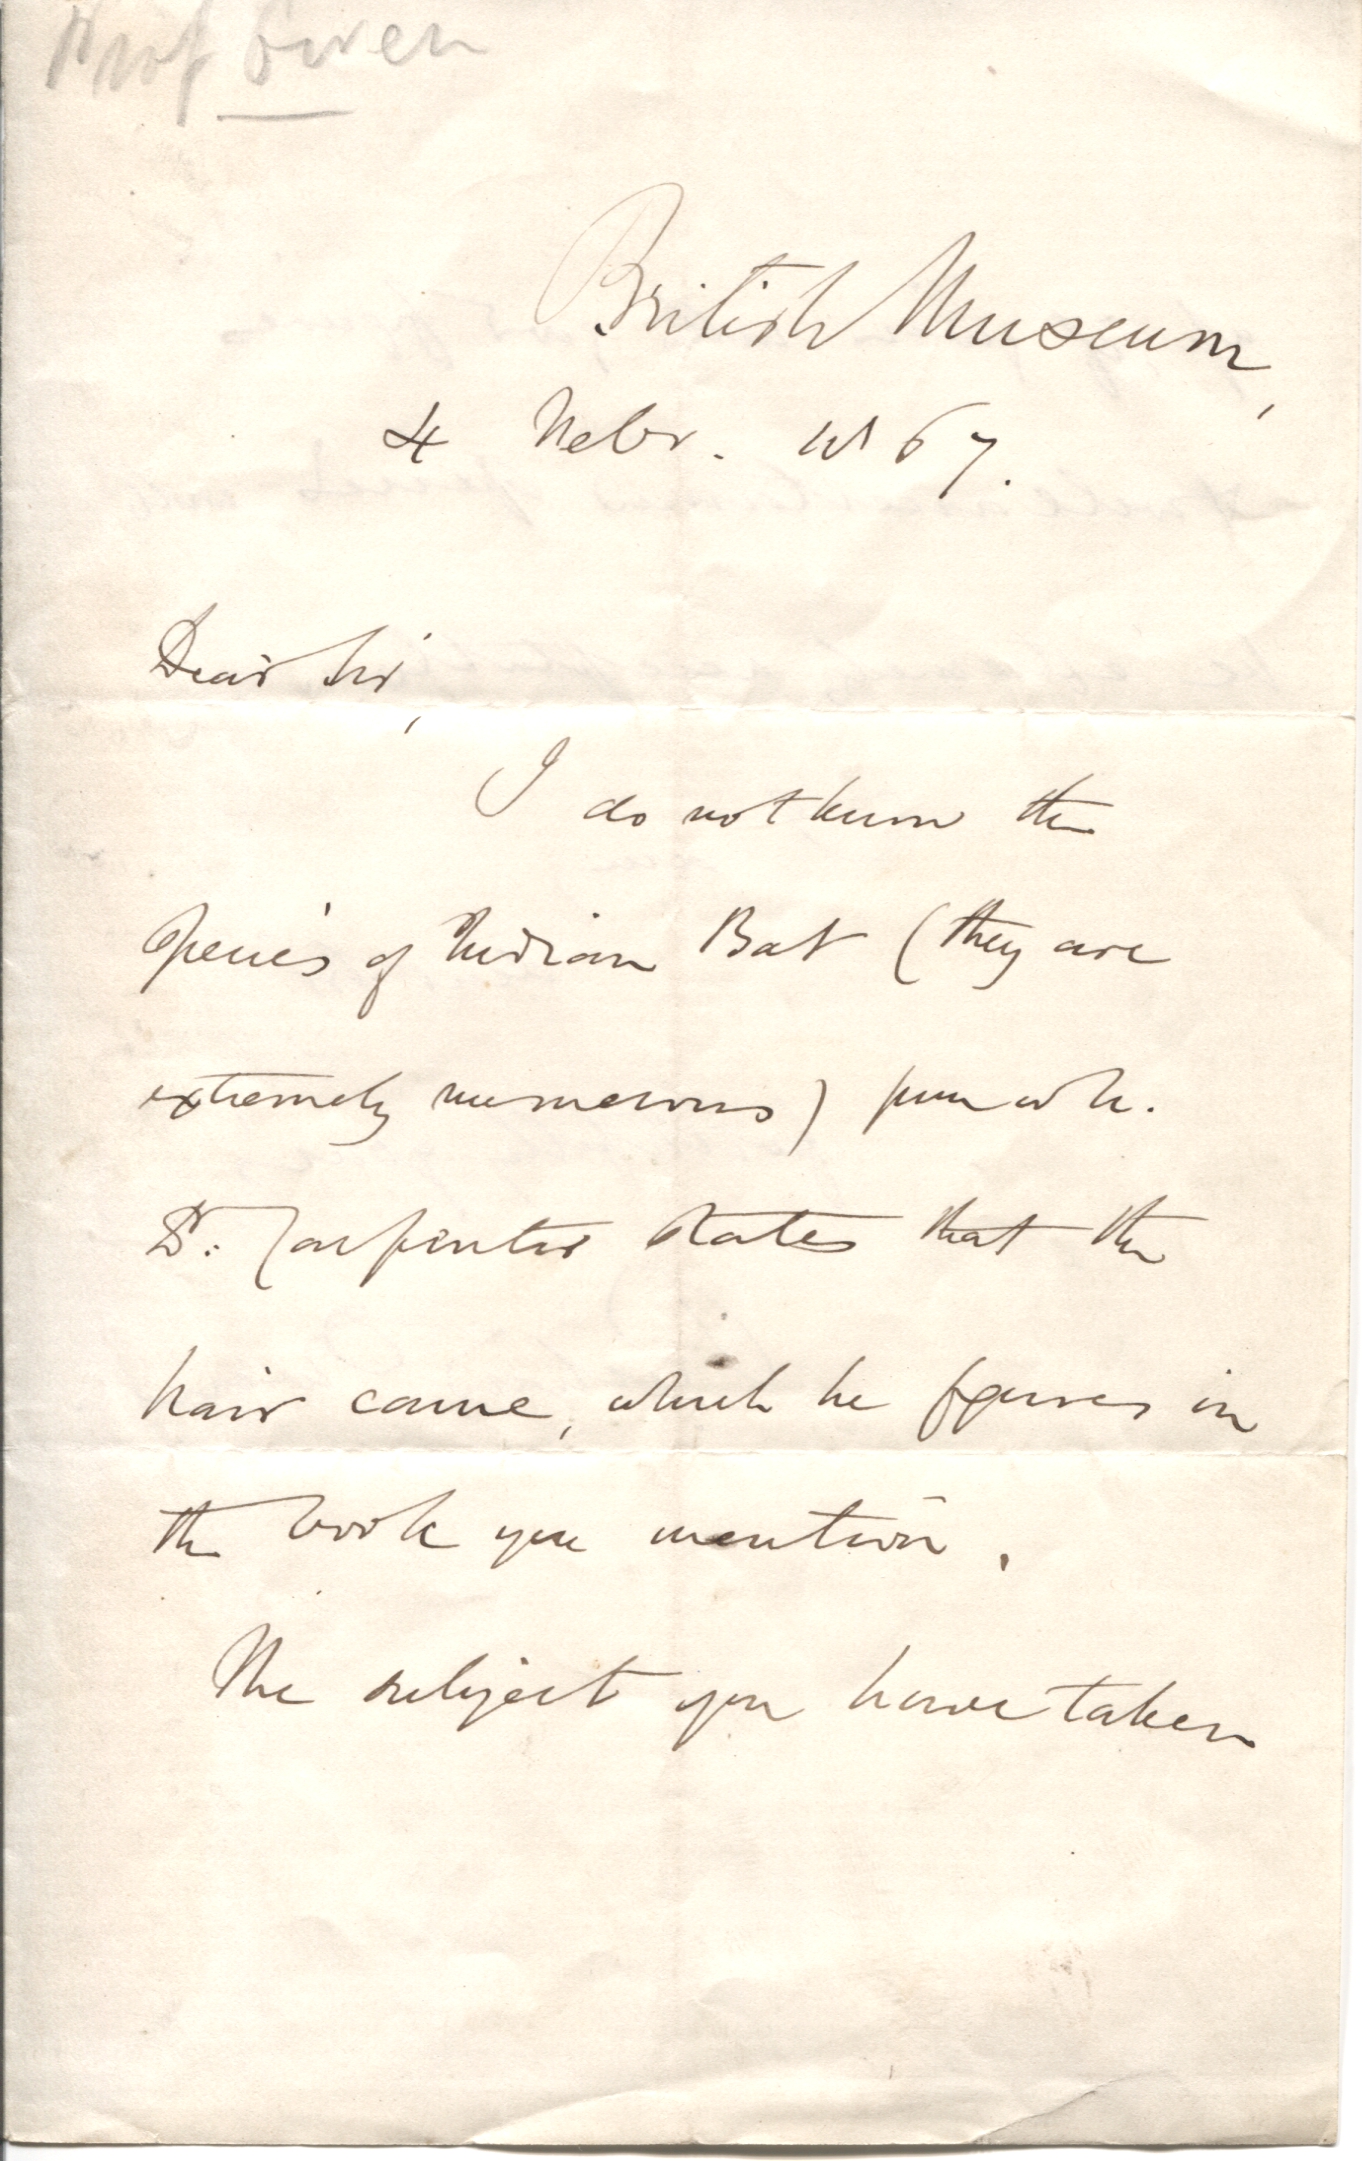 Prof Owen
British Museum,
4 Febr. 1867.
Dear Sir,
I do not know the
species of Indian Bat (they are
extremely numerous) from wh.
Dr. Carpenter states that the
hair came, which he figures in
the book you mention.
The subject you have taken